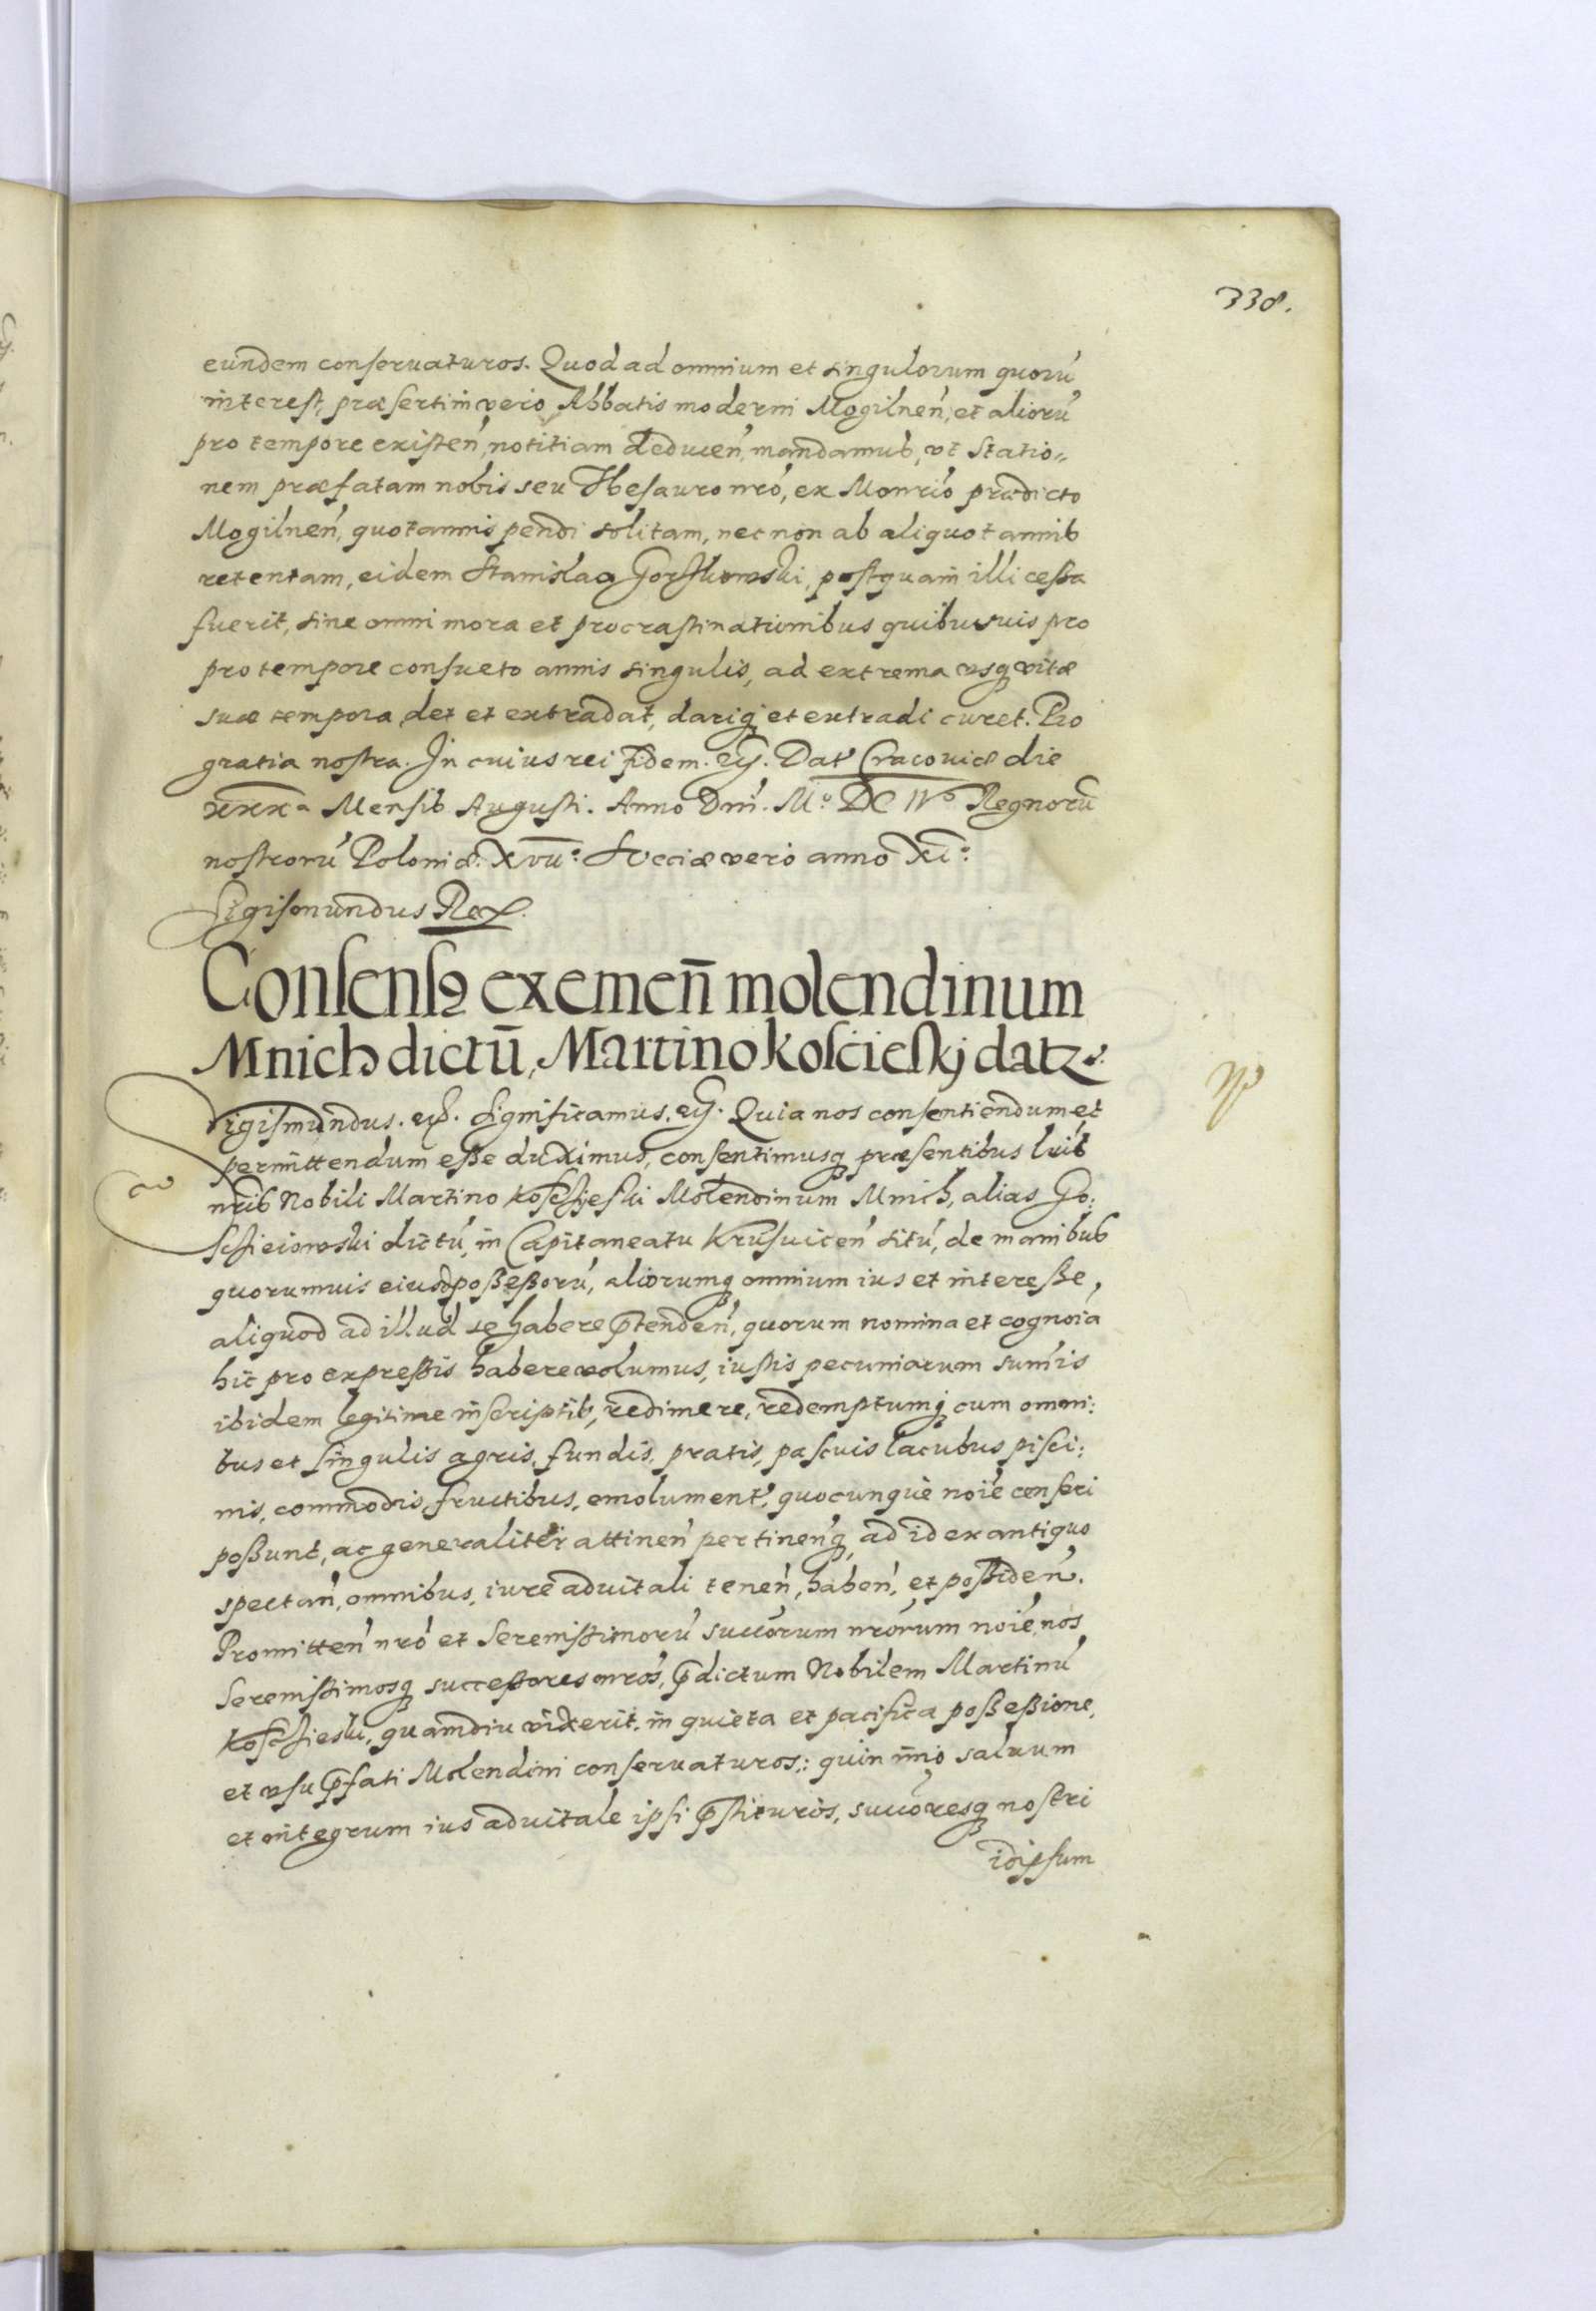 338.
eundem conseruaturos. Quod ad omnium et singulorum quorũ
interest, præsertim vero Abbatis moderni Mogilneñ, et aliorũ
pro tempore existeñ, notitiam deduceñ, mandamus, vt Statio„
nem præfatam nobis seu Thesauro nrõ, ex Monrio prædicto
Mogilneñ, quotannis pendi solitam, nec non ab aliquot annis
retentam, eidem Stanislao Gorskowski, postquam illi cessa
fuerit, sine omni mora et procrastinationibus quibusuis pro
pro tempore consueto annis singulis, ad extrema vsq vitæ
suæ tempora, det et extradat, dariq et extradi curet. Pro
gratia nostra. In cuius rei fidem. etc. Dat Cracouiæ die
xxxa Mensis Augusti. Anno Dñi. Mo DC IVo Regnorũ
nostrorũ Poloniæ. XVIIo Sueciæ vero anno XIo
Sigismundus Rex.
Consensꝯ exemeñ molendinum
Mnich dictũ, Martino Koscieskj datꝫ
Sigismundus. etc. Significamus. etc. Quia nos consentiendum et
permittendum esse duximus, consentimusq præsentibus lris
nrĩs Nobili Martino Koscieski Molendinum Mnich, alias Go:
scieiowski dictũ, in Capitaneatu Krusuiceñ sitũ, de manibus
quorumuis eiusd possessorũ, aliorumq omnium ius et interesse,
aliquod ad illud se habere p̃tendeñ, quorum nomina et cognoĩa
hic pro expressis habere volumus, iustis pecuniarum sum̃is
ibidem legitime inscriptis, redimere, redemptumq cum omni:
bus et singulis agris, fundis, pratis, pascuis lacubus pisci:
nis, commodis, fructibus, emolument, quocunque noĩe conseri
possunt, ac generaliter attineñ pertineñq, ad id ex antiquo
spectañ, omnibus, iure aduitali teneñ, habeñ, et possideñ.
Promitteñ nrõ et Serenissimorũ succorum nrõrum noĩe, nos
Serenissimosq successores nrõs, p̃dictum Nobilem Martinũ
Koscieski, quamdiu vixerit, in quieta et pacifica possessione,
et vsu p̃fati Molendini conseruaturos: quin im̃o saluum
et integrum ius aduitale ipsi p̃stituros, succoresq nostri
idipsum